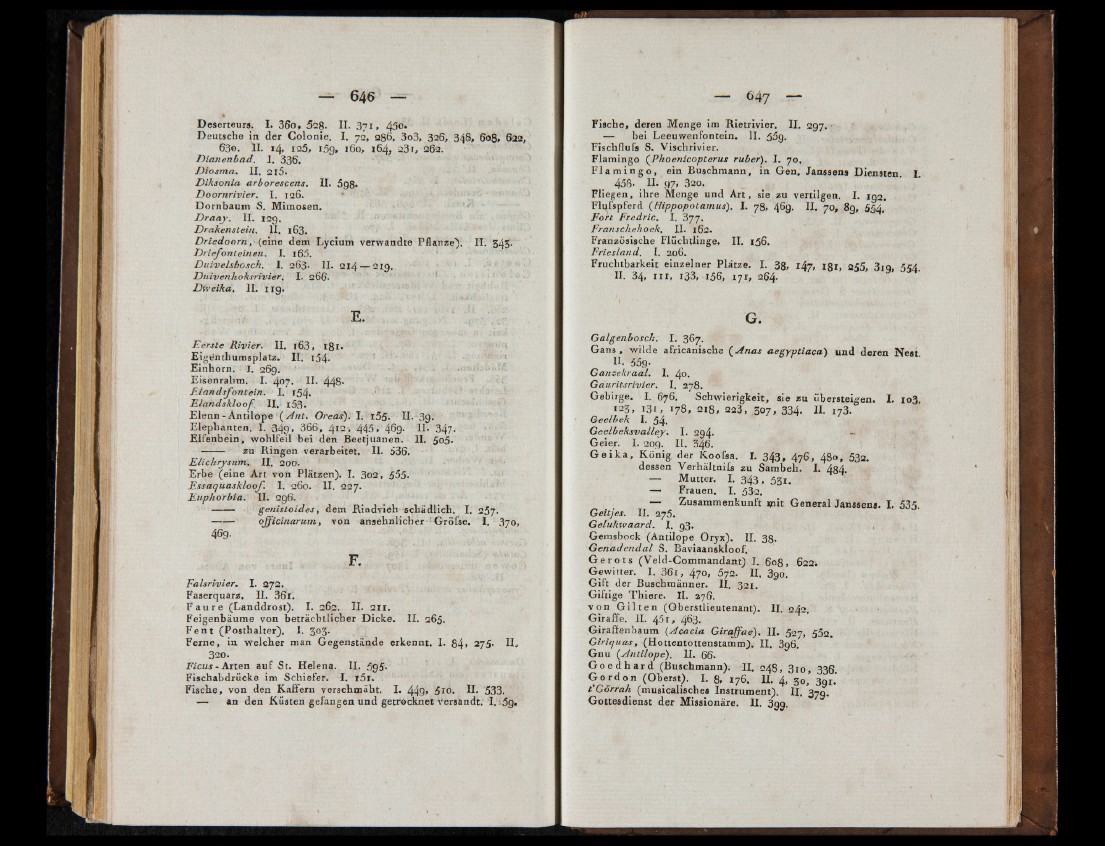 — 646 —
Deserteurs. I. 360, 528. II. 371, 450.
Deutsche in der Colonie. I. 72, 286, 303, 326, 348, 608, 622,
630. II. 14, 125, 159, 160, 164, 231, 262.
Dianenbad. I. 336.
Diosma. II. 215.
Diksonia arborescens. II. 598.
Doornrivier. I. 126.
Dornbaum S. Mimosen.
Draay. II. 129.
Drakenstein. II. 163.
Driedoorn, (eine dem Lycium verwandte Pflanze). II. 343.
Driefonteinen. I. 165.
Duivelsbosch. I. 263. II. 214—219.
Duivenhoksrivier. I. 266.
Dweika. II. 119.
E.
Eerste Rivier. II. 163, 181.
Eigenthumsplatz. II. 154.
Einhorn. I. 269.
Eisenrahm. I. 407. II. 448.
Elandsfontein. I. 154.
Elandskloof. II. 153.
Elenn-Antilope (Ant. Oreas). I. 155. II. 39.
Elephanten. I. 349, 366, 412, 445, 469. II. 347.
Elfenbein, wohlfeil bei den Beetjuanen. II. 505.
—— zu Ringen verarbeitet. II. 536.
Elichrysum. II. 200.
Erbe (eine Art von Plätzen). I. 302, 555.
Essaquaskloof. I. 260. II. 227.
Euphorbia. II. 296.
—— genistoides, dem Rindvieh schädlich. I. 257.
—— officinarum, von ansehnlicher Gröfse. I. 370,
469.
F.
Falsrivier. I. 272.
Faserquarz. II. 361.
Faure (Landdrost). I. 262. II. 211.
Feigenbäume von beträchtlicher Dicke. II. 265.
Fent (Posthalter). I. 303.
Ferne, in welcher man Gegenstände erkennt. I. 84, 275. II.
320.
Ficus-Arten auf St. Helena. II. 595.
Fischabdrücke im Schiefer. I. 151.
Fische, von den Kaffern verschmäht. I. 449, 510. II. 533.
— an den Küsten gefangen und getrocknet versandt. I. 59.
— 647 —
Fische, deren Menge im Rietrivier. II. 297.
— bei Leeuwenfontein. II. 559.
Fischflufs S. Vischrivier.
Flamingo (Phoenicopterus ruber). I. 70.
Flamingo, ein Buschmann, in Gen. Janssens Diensten. I.
458. II. 97, 320.
Fliegen, ihre Menge und Art, sie zu vertilgen. I. 192.
Flufspferd (Hippopotamus). I. 78, 469. II. 70, 89, 554.
Fort Fredric. I. 377.
Franschehoek. II. 162.
Französische Flüchtlinge. II. 156.
Friesland. I. 206.
Fruchtbarkeit einzelner Plätze. I. 38, 147, 181, 255, 319, 554.
II. 34, 111, 133, 156, 171, 264.
G.
Galgenbosch. I. 367.
Gans, wilde africanische (Anas aegyptiaca) und deren Nest.
II. 559.
Ganzekraal. I. 40.
Gauritsrivier. I. 278.
Gebirge. I. 676. Schwierigkeit, sie zu übersteigen. I. 103,
123, 131, 178, 218, 223, 307, 334. II. 173.
Geelbek I. 54.
Geelbeksvalley. I. 294.
Geier. I. 209. II. 346.
Geika, König der Koofsa. I. 343, 476, 480, 532.
dessen Verhältnifs zu Sambeh. I. 484.
— Mutter. I. 343, 531.
— Frauen. I. 532.
— Zusammenkunft mit General Janssens. I. 535.
Geitjes. II. 275.
Gelukwaard. I. 93.
Gemsbock (Antilope Oryx). II. 38.
Genadendal S. Baviaanskloof.
Gerots (Veld-Commandant) I. 608, 622.
Gewitter. I. 361, 470, 572. II. 390.
Gift der Buschmänner. II. 321.
Giftige Thiere. II. 276.
von Gilten (Oberstlieutenant). II. 242.
Giraffe. II. 451, 463.
Giraffenbaum (Acacia Giraffae). II. 527, 552.
Giriquas, (Hottentottenstamm). II. 396.
Gnu (Antilope). II. 66.
Goedhard (Buschmann). II. 248, 310, 336.
Gordon (Oberst). I. 8, 176. II. 4, 30, 391.
t'Górrah (musicalisches Instrument). II. 379.
Gottesdienst der Missionäre. II. 399.